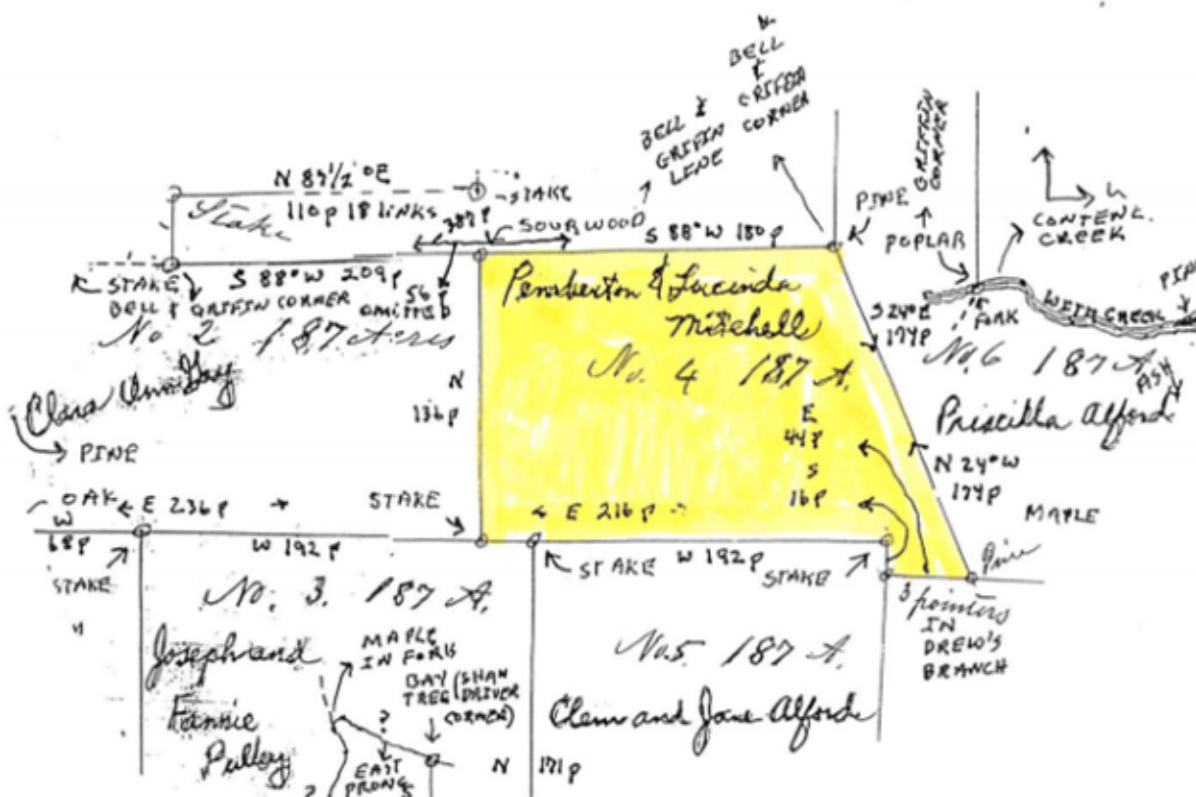 BELL
&
GRIFFIN
CORNER
BELL &
GRIFFIN
LINE
GRIFFIN
CORNER
N 89 1/2 °E
STAKE
Stake
110 p 18 LINKS
389 P
SOURWOOD
S 88° W 180 p
PINE
POPLAR
CONTENT.
CREEK
STAKE
S 88° W 209 p
BELL & GRIFFIN CORNER
56 P
OMITTED
No 2 187 Acres
Clara Ann Gay
PINE
Pemberton & Lucinda
Mitchell
No. 4 187 A.
S 24° E
174 P
FORK
CREEK
No. 6 187 A.
ASH
Priscilla Alford
N
136 p
E
44 P
S
16 P
N 24° W
174 p
MAPLE
OAK
E 236 p
STAKE
E 216 p
W
68 P
W 192 P
STAKE
STAKE
W 192 p
STAKE
Pine
3 pointers
IN
DREW'S
BRANCH
No. 3. 187 A.
Joseph and
Fannie
Pulley
MAPLE
IN FORK
BAY
TREE
DRIVER
CORNER)
?
EAST
PRONG
No. 5 187 A.
Clem and Jane Alford
N 171 p